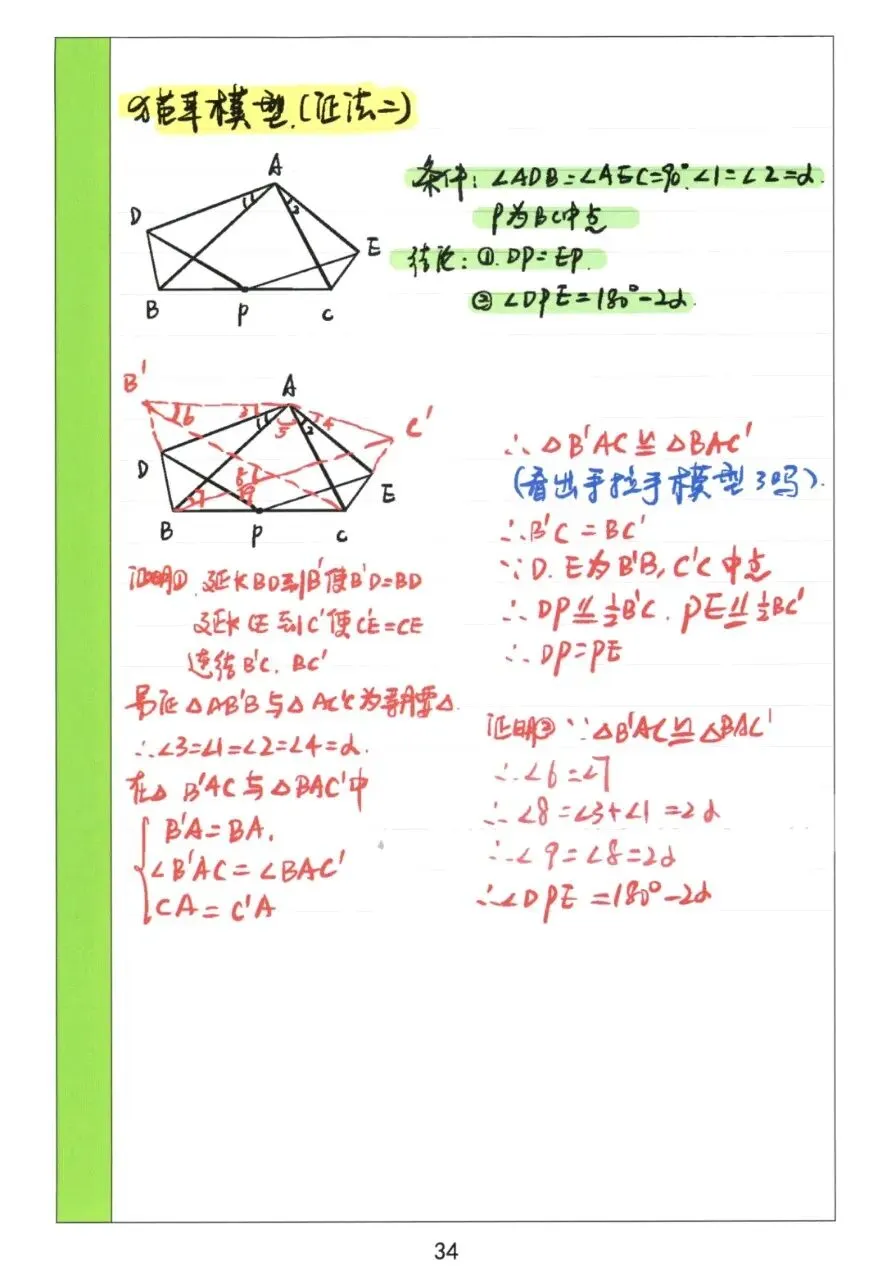 猫耳模型.(证法二)
A
D
1
2
E
B
P
C
条件: ∠ADB=∠AEC=90°.∠1=∠2=α.
P为BC中点
结论: ①.DP=EP.
②∠DPE=180°-2α.
B'
A
C'
6
3
1
5
2
4
D
8
9
7
E
B
P
C
证明①.延长BD到B'使B'D=BD
延长CE到C'使C'E=CE
连结B'C.BC'
易证△AB'B与△AC'C为等腰△.
∴∠3=∠1=∠2=∠4=α.
在△B'AC与△BAC'中
B'A=BA.
∠B'AC=∠BAC'
CA=C'A
∴△B'AC≌△BAC'
(看出手拉手模型了吗).
∴B'C=BC'
∵D.E为B'B,C'C中点
∴DP⫽½B'C.PE⫽½BC'
∴DP=PE
证明②∵△B'AC≌△BAC'
∴∠6=∠7
∴∠8=∠3+∠1=2α
∴∠9=∠8=2α
∴∠DPE=180°-2α
34